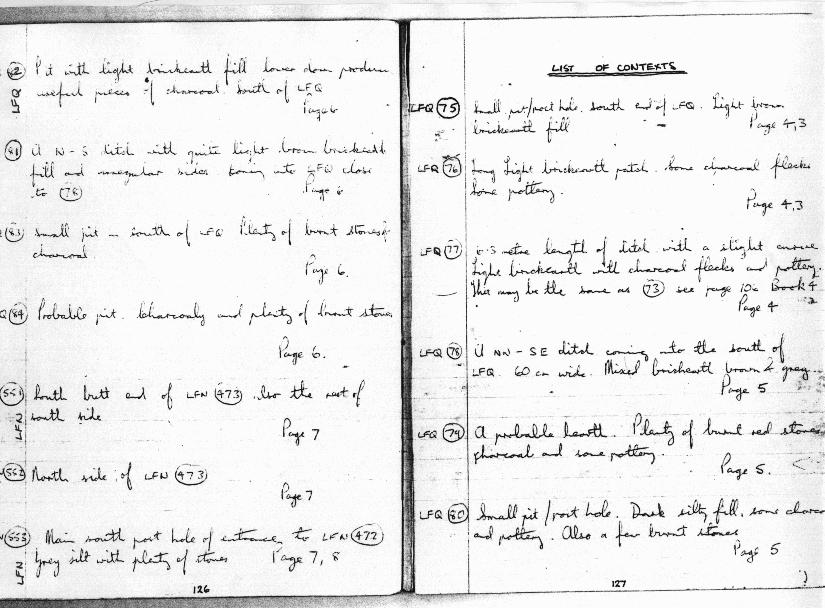 82 Pit with light brickearth fill lower down produce
LFQ useful pieces of charcoal. South of LFQ
Page 6
81 A N-S ditch with quite light brown brickearth
fill and irregular sides coming into LFQ close
to 78 Page 6
83 Small pit in south of LFQ Plenty of burnt stones &
charcoal
Page 6.
84 Probable pit. Charcoaly and plenty of burnt stones
Page 6.
551 South butt end of LFN 473 Also the rest of
LFN south side
Page 7
552 North side of LFN 473
Page 7
553 Main south post hole of entrance to LFN 472
LFN Grey silt with plenty of stones Page 7, 8
126
LIST OF CONTEXTS
LFQ 75 Small pit/post hole. South end of LFQ. Light brown
brickearth fill Page 4,3
LFQ 76 Long Light brickearth patch. Some charcoal flecks
Some pottery.
Page 4,3
LFQ 77 metre length of ditch with a slight curve
Light brickearth with charcoal flecks and pottery.
This may be the same as 73 see page 10a Book 4
Page 4
LFQ 78 A NW-SE ditch coming into the south of
LFQ. 60 cm wide. Mixed brickearth brown & grey
Page 5
LFQ 79 A probable hearth. Plenty of burnt red stones
charcoal and some pottery.
Page 5.
LFQ 80 Small pit/post hole. Dark silty fill, some charco
and pottery. Also a few burnt stones
Page 5
127